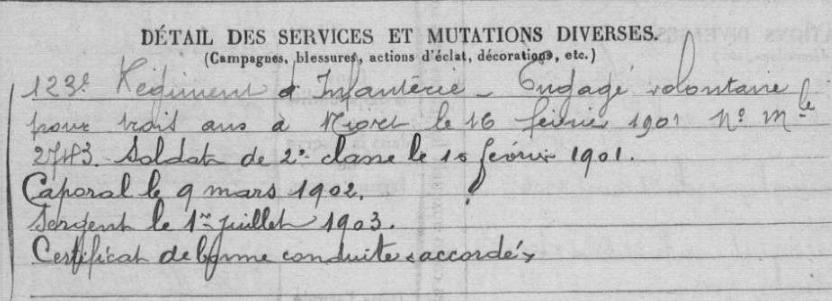 DÉTAIL DES SERVICES ET MUTATIONS DIVERSES.
(Campagnes, blessures, actions d'éclat, décorations, etc.)
123e Régiment d'Infanterie - Engagé volontaire
pour trois ans à Niort le 16 février 1901 No Mle
2743. Soldat de 2e classe le 16 février 1901.
Caporal le 9 mars 1902.
Sergent le 1er juillet 1903.
Certificat de bonne conduite "accordé"